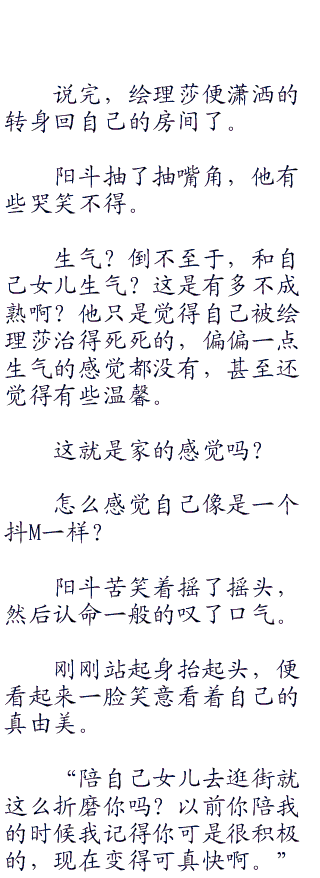 说完，绘理莎便潇洒的
转身回自己的房间了。
阳斗抽了抽嘴角，他有
些哭笑不得。
生气？倒不至于，和自
己女儿生气？这是有多不成
熟啊？他只是觉得自己被绘
理莎治得死死的，偏偏一点
生气的感觉都没有，甚至还
觉得有些温馨。
这就是家的感觉吗？
怎么感觉自己像是一个
抖M一样？
阳斗苦笑着摇了摇头，
然后认命一般的叹了口气。
刚刚站起身抬起头，便
看起来一脸笑意看着自己的
真由美。
“陪自己女儿去逛街就
这么折磨你吗？以前你陪我
的时候我记得你可是很积极
的，现在变得可真快啊。”